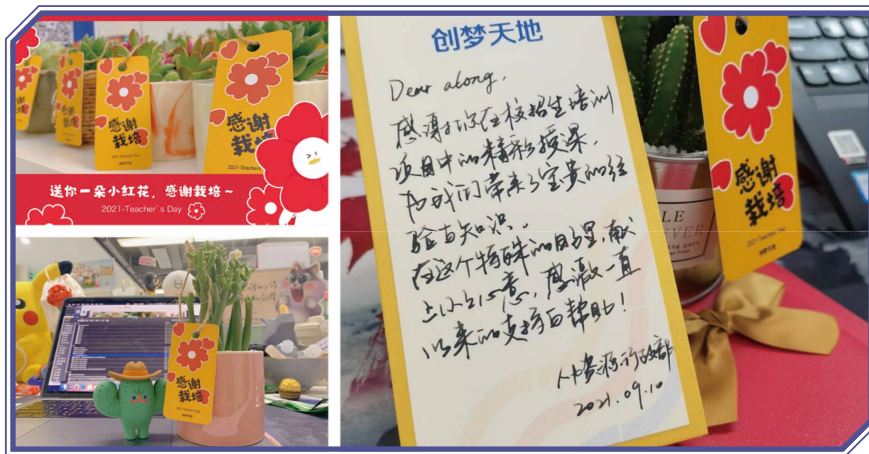 感谢
栽培
感谢
栽培
2021-Teacher's Day
送你一朵小红花，感谢栽培~
2021-Teacher's Day
感谢
栽培
创梦天地
Dear along,
感谢你在校招生培训
项目中的精彩授课，
为我们带来了宝贵的经
验与知识。
在这个特殊的日子里，献
上小小心意，感激一直
以来的支持与帮助！
人力资源行政部
2021.09.10
感谢
栽培
2021-Teacher's Day